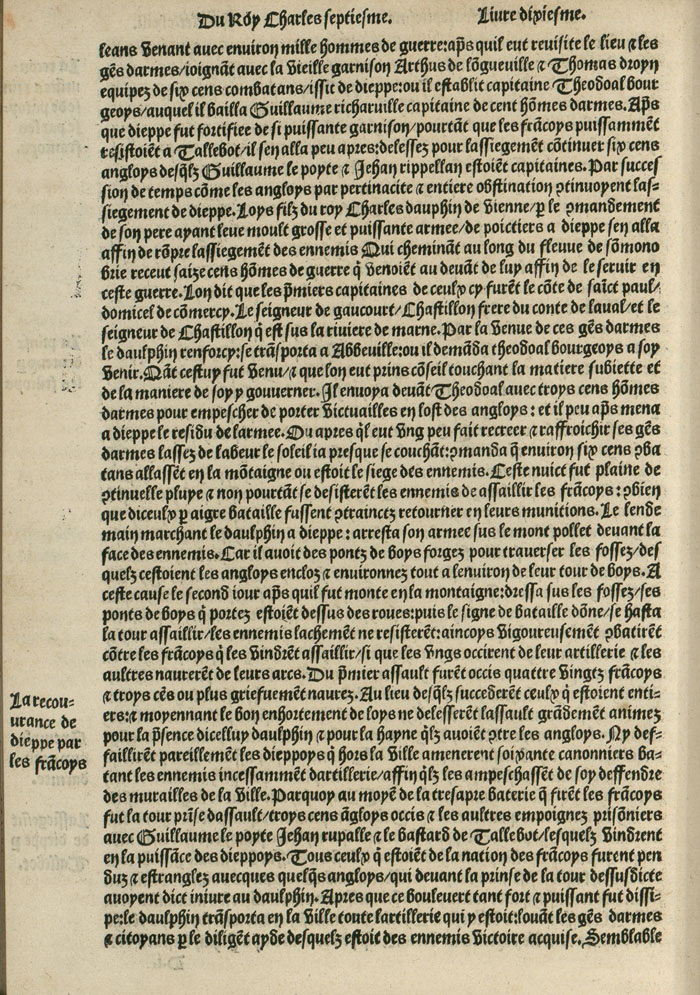 Du Roy Charles septiesme. Liure dixiesme.
leans venant auec enuiron mille hommes de guerre:aps̄ quil eut reuisite le lieu ⁊ les
gēs darmes/ioignāt auec la vieille garnison Arthus de lōgueuille ⁊ Thomas droyn
equipez de six cens combatans/issit de dieppe:ou il establit capitaine Theodoal bour
geoys/auquel il bailla Guillaume richaruille capitaine de cent hōmes darmes. Aps̄
que dieppe fut fortifiee de si puissante garnison/pourtāt que les frācoys puissammēt
resistoiēt a Tallebot/il sen alla peu apres:delessez pour lassiegemēt cōtinuer six cens
angloys desq̄lz Guillaume le poyte ⁊ Jehan rippellan estoiēt capitaines. Par succes
sion de temps cōme les angloys par pertinacite ⁊ entiere obstination ꝯtinuoyent las-
siegement de dieppe. Loys filz du roy Charles dauphin de vienne/ꝑ le ꝯmandement
de son pere ayant leue moult grosse et puissante armee/de poictiers a dieppe sen alla
affin de rōpre lassiegemēt des ennemis Qui chemināt au long du fleuue de sōmono
brie receut saize cens hōmes de guerre q̄ venoiēt au deuāt de luy affin de le seruir en
ceste guerre. Lon dit que les p̄miers capitaines de ceulx cy furēt le cōte de saīct paul/
domicel de cōmercy. Le seigneur de gaucourt/Chastillon frere du conte de laual/et le
seigneur de Chastillon q̄ est sus la riuiere de marne. Par la venue de ces gēs darmes
le daulphin renforcy:se trāsporta a Abbeuille:ou il demāda theodoal bourgeoys a soy
venir. Quāt cestuy fut venu/⁊ que lon eut prins cōseil touchant la matiere subiette et
de la maniere de soy y gouuerner. Il enuoya deuāt Theodoal auec troys cens hōmes
darmes pour empescher de porter victuailles en lost des angloys: et il peu aps̄ mena
a dieppe le residu de larmee. Ou apres q̄l eut vng peu fait recreer ⁊ raffroichir ses gēs
darmes lassez de labeur le soleil ia presque se couchāt:ꝯmanda q̄ enuiron six cens ꝯba
tans allassēt en la mōtaigne ou estoit le siege des ennemis. Ceste nuict fut plaine de
ꝯtinuelle pluye ⁊ non pourtāt se desisterēt les ennemis de assaillir les frācoys: ꝯbien
que diceulx ꝑ aigre bataille fussent ꝯtrainctz retourner en leurs munitions. Le lende
main marchant le daulphin a dieppe: arresta son armee sus le mont pollet deuant la
face des ennemis. Car il auoit des pontz de boys forgez pour trauerser les fossez/des
quelz cestoient les angloys encloz ⁊ enuironnez tout a lenuiron de leur tour de boys. A
ceste cause le second iour aps̄ quil fut monte en la montaigne:dressa sus les fossez/ses
ponts de boys q̄ portez estoiēt dessus des roues:puis le signe de bataille dōne/se hasta
la tour assaillir/les ennemis lachemēt ne resisterēt:aincoys vigoureusemēt ꝯbatirēt
cōtre les frācoys q̄ les vindrēt assaillir/si que les vngs occirent de leur artillerie ⁊ les
aultres naurerēt de leurs arcs. Du p̄mier assault furēt occis quattre vingtz frācoys
⁊ troys cēs ou plus griefuemēt naurez. Au lieu desq̄lz succederēt ceulx q̄ estoient enti-
ers:⁊ moyennant le bon enhortement de loys ne delesserēt lassault grādemēt animez
pour la p̄sence dicelluy daulphin ⁊ pour la hayne q̄lz auoiēt ꝯtre les angloys. Ny def-
faillirēt pareillemēt les dieppoys q̄ hors la ville amenerent soixante canonniers ba-
tant les ennemis incessammēt dartillerie/affin q̄lz les ampeschassēt de soy deffendre
des murailles de la ville. Parquoy au moyē de la tresapre baterie q̄ firēt les frācoys
fut la tour prīse dassault/troys cens āgloys occis ⁊ les aultres empoignez prisōniers
auec Guillaume le poyte Jehan rupalle ⁊ le bastard de Tallebot/lesquelz vindrent
en la puissāce des dieppoys. Tous ceulx q̄ estoiēt de la nation des frācoys furent pen
duz ⁊ estranglez auecques quelq̄s angloys/qui deuant la prinse de la tour dessusdicte
auoyent dict iniure au daulphin. Apres que ce bouleuert tant fort ⁊ puissant fut dissi-
pe:le daulphin trāsporta en la ville toute lartillerie qui y estoit:louāt les gēs darmes
⁊ citoyans ꝑ le diligēt ayde desquelz estoit des ennemis victoire acquise. Semblable
La recou-
urance de
dieppe par
les frācoys